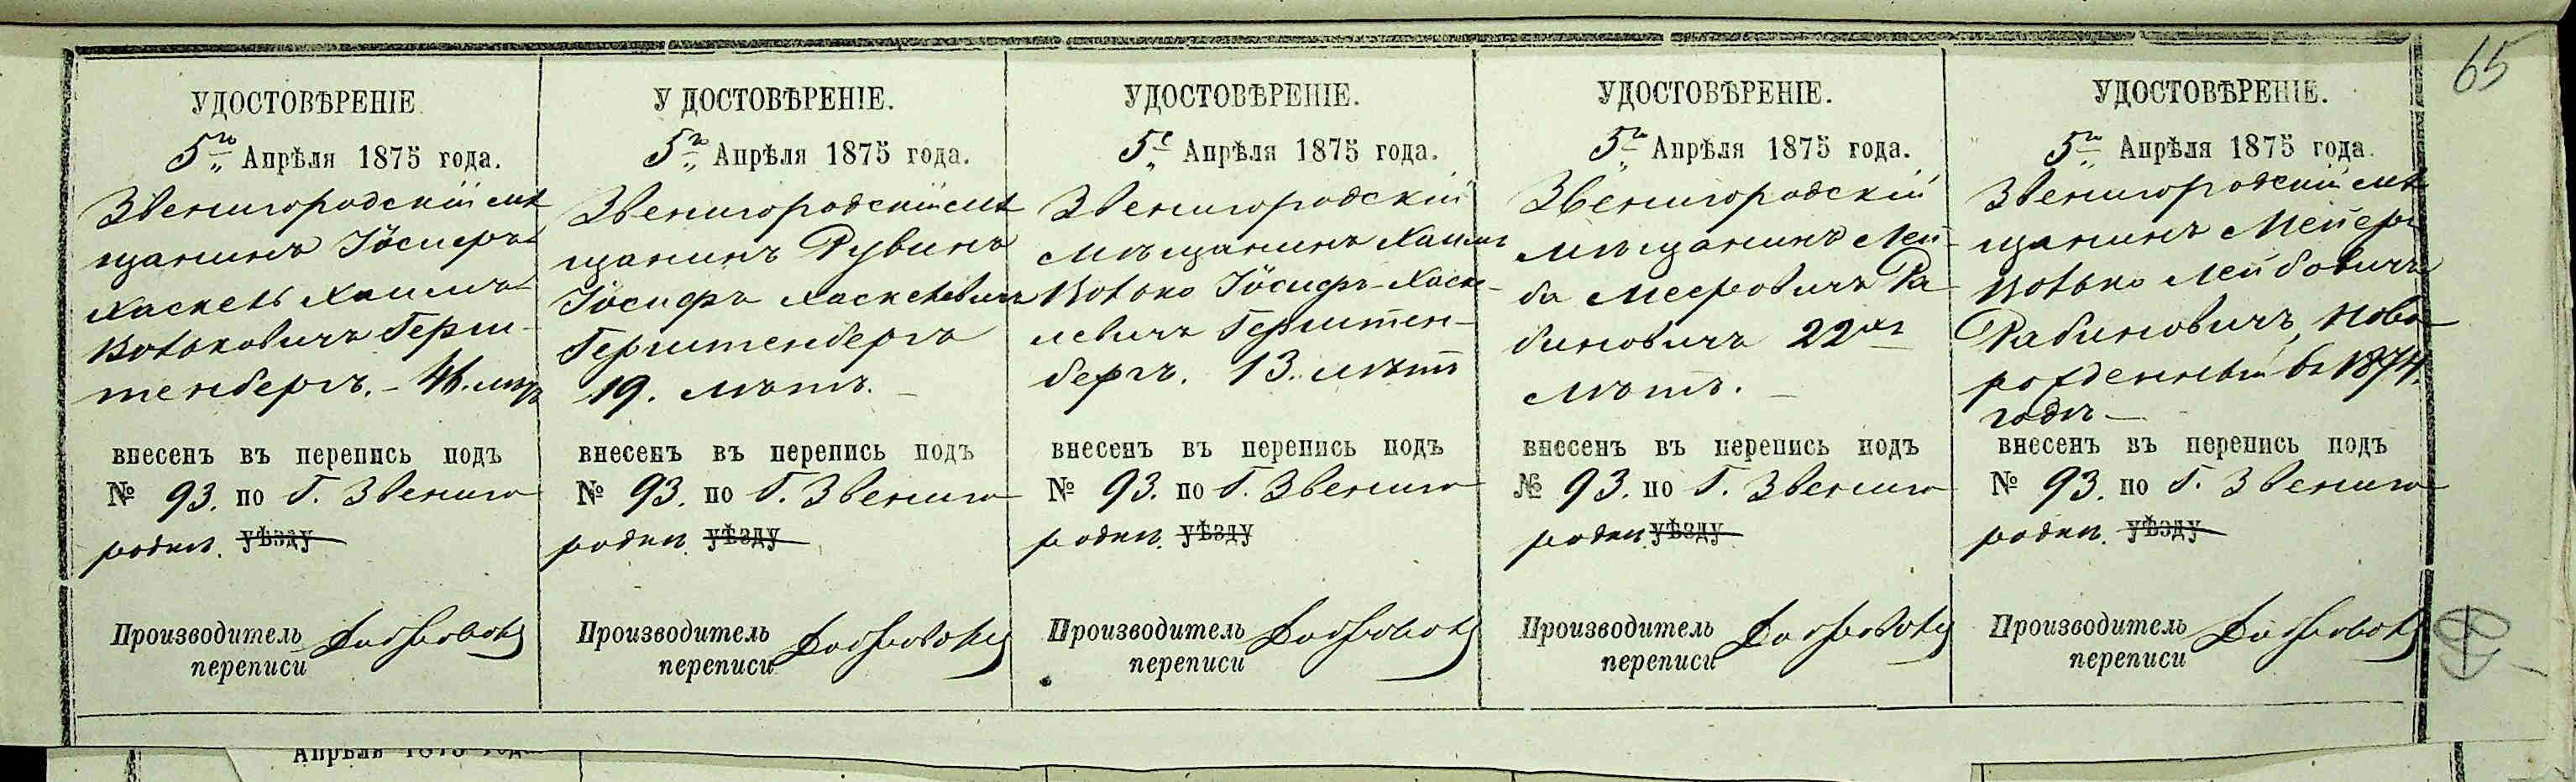 65
УДОСТОВѢРЕНІЕ
5го Апрѣля 1875 года.
Звенигородскій мѣ
щанинъ Іосифъ-
Хаскель Хаимъ-
Вольковичъ Герш-
тенбергъ. – 46. лѣтъ
внесенъ въ перепись подъ
№ 93. по Г. Звениго
родкѣ. уѣзду
Производитель
переписи
У ДОСТОВѢРЕНІЕ.
5го Апрѣля 1875 года.
Звенигородскій мѣ
щанинъ Рувинъ
Іосифъ Хаскелевичъ
Герштенбергъ
19. лѣтъ. –
внесенъ въ перепись подъ
№ 93. по Г. Звениго
родкѣ. уѣзду
Производитель
переписи
УДОСТОВѢРЕНІЕ.
5е Апрѣля 1875 года.
Звенигородскій
мѣщанинъ Хаимъ
Волько Іосифъ-Хаске-
левичъ Герштен-
бергъ. 13. лѣтъ
внесенъ въ перепись подъ
№ 93. по Г. Звениго
родкѣ. уѣзду
Производитель
переписи
УДОСТОВѢРЕНІЕ.
5го Апрѣля 1875 года.
Звенигородскій
мѣщанинъ Лей-
ба Мееровичъ Ра
биновичъ 22хъ
лѣтъ. –
внесенъ въ перепись подъ
№ 93. по Г. Звениго
родкѣ уѣзду
Производитель
переписи
УДОСТОВѢРЕНІЕ.
5го Апрѣля 1875 года.
Звенигородскій мѣ
щанинъ Мейеръ
Волько Лейбовичъ
Рабиновичъ, ново
рожденный въ 1874.
годѣ –
внесенъ въ перепись подъ
№ 93. по Г. Звениго
родкѣ. уѣзду
Производитель
переписи
Апрѣля 1875 года